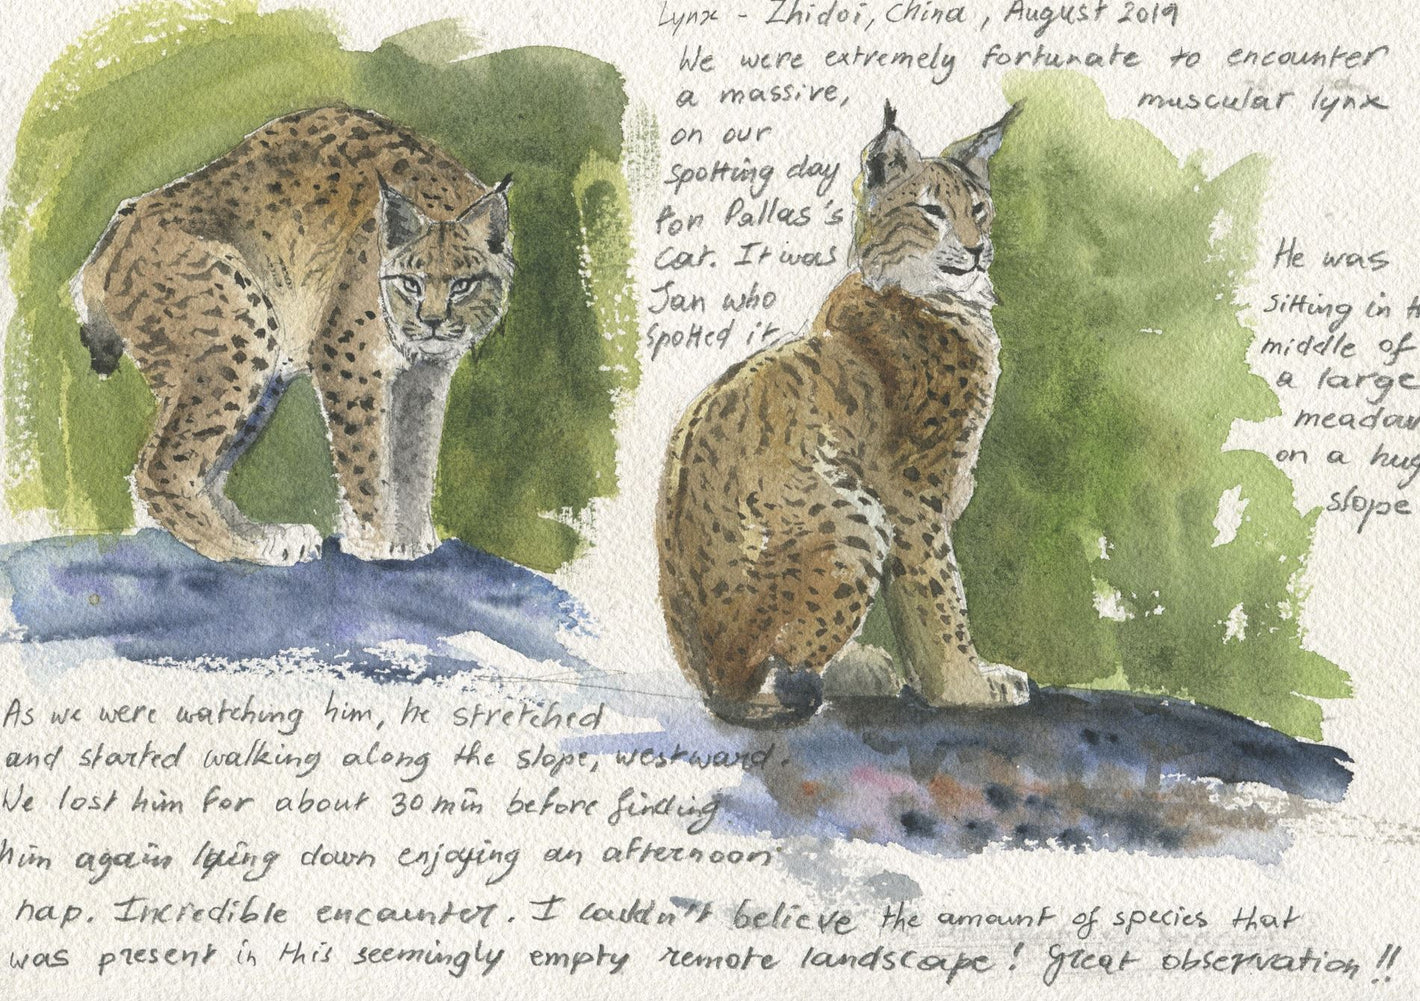 Lynx - Zhidoi, China, August 2019
We were extremely fortunate to encounter
a massive, muscular lynx
on our
spotting day
for Pallas's
cat. It was
Jan who
spotted it
He was
sitting in
middle of
a large
meadow
on a
slope
As we were watching him, he stretched
and started walking along the slope, westward.
We lost him for about 30 min before finding
him again lying down enjoying an afternoon
nap. Incredible encounter. I couldn't believe the amount of species that
was present in this seemingly empty remote landscape! Great observation!!